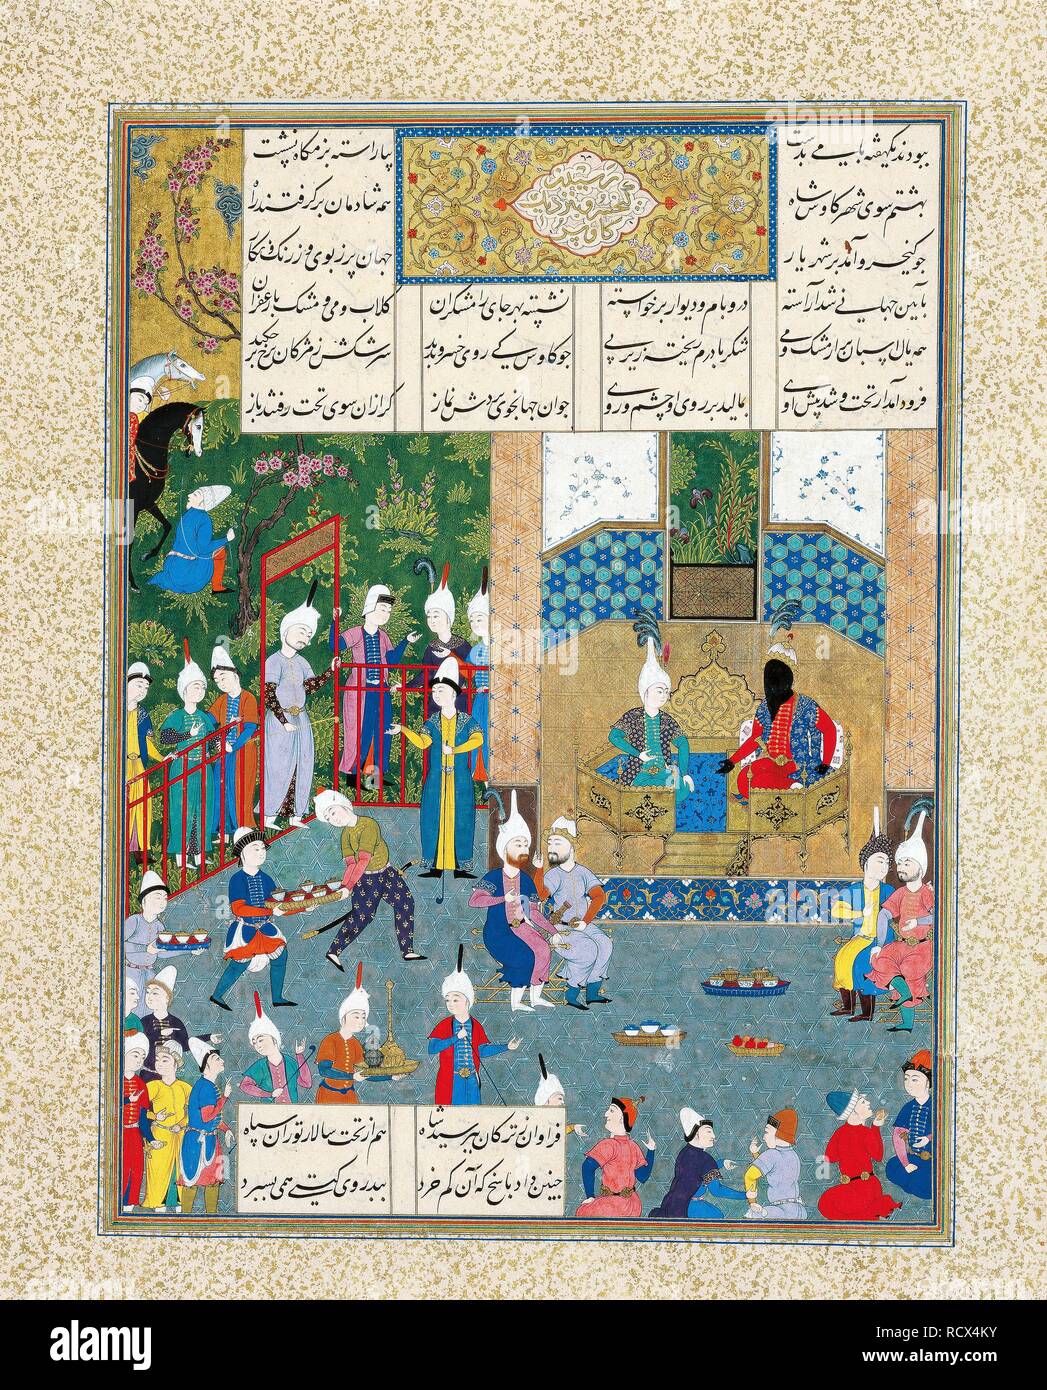 ببودند یکهفته با می بدست بیاراسته بزمگاه نشست
بهشتم سوی شهر کاوس شاه همه شادمان برگرفتند راه
کیخسرو
کاوس
چو کیخسرو آمد بر شهریار جهان پر ز بوی و ز رنگ و نگار
بآیین جهانی شد آراسته در و بام و دیوار پرخواسته نشسته بهر جای رامشگران گلاب و می و مشک با زعفران
همه یال اسپان پر از مشک و می شکر با درم ریخته زیر پی چو کاوس کی روی خسرو بدید سرشکش ز مژگان برخ بر چکید
فرود آمد از تخت و شد پیش اوی بمالید بر روی او چشم و روی جوان جهانجوی بردش نماز گرازان سوی تخت رفتند باز
فراوان ز ترکان بپرسید شاه هم از تخت سالار توران سپاه
چنین داد پاسخ که آن کم خرد ببد روی گیتی همی بسپرد
alamy
Image ID: RCX4KY
www.alamy.com